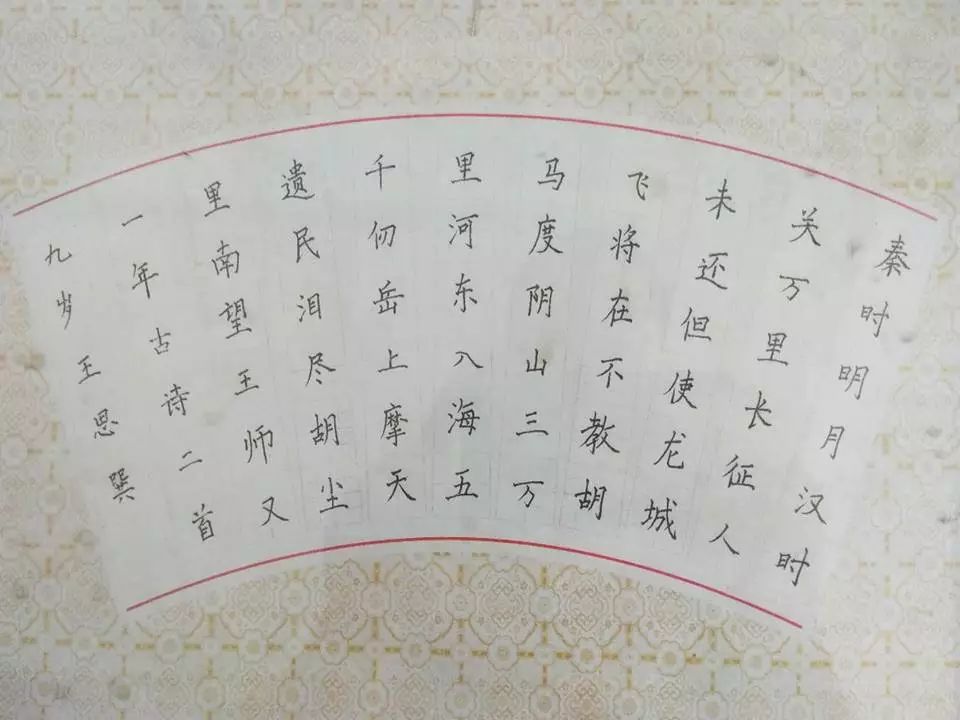 秦时明月汉时
关万里长征人
未还但使龙城
飞将在不教胡
马度阴山三万
里河东入海五
千仞岳上摩天
遗民泪尽胡尘
里南望王师又
一年古诗二首
九岁王恩巽